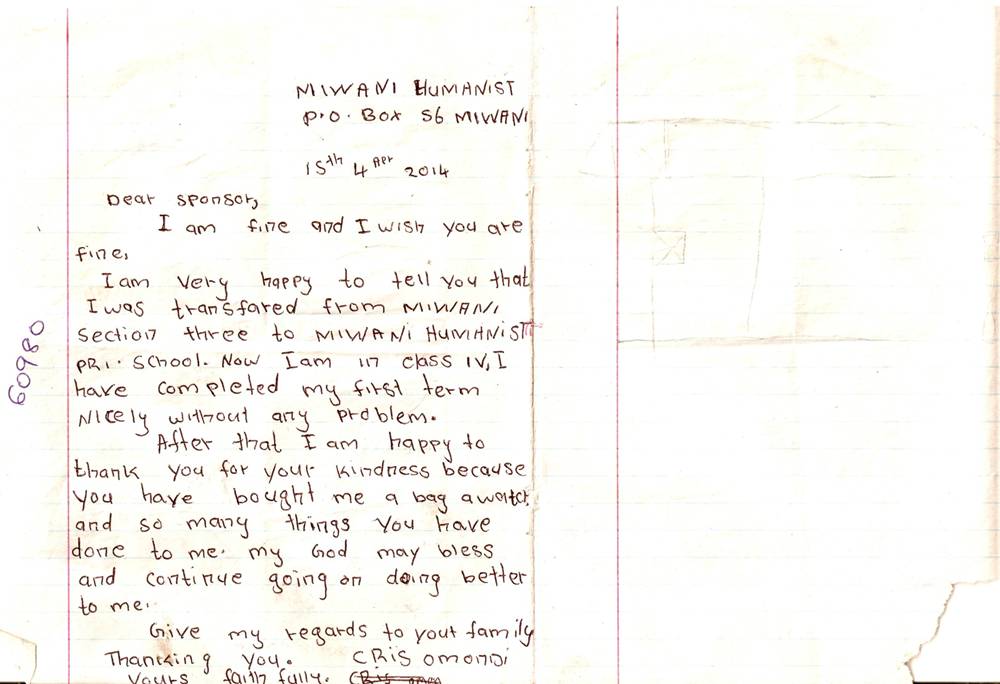 MIWANI HUMANIST
P.O. BOX 56 MIWANI
15th 4 Apr 2014
Dear sponsor,
I am fine and I wish you are
fine,
I am very happy to tell you that
I was transfared from MIWANI
section three to MIWANI HUMANIST
PRI. School. Now I am in class IV, I
have completed my first term
Nicely without any problem.
After that I am happy to
thank you for your kindness because
you have bought me a bag a watch
and so many things you have
done to me. my God may bless
and continue going on doing better
to me.
Give my regards to your family
Thanking you. CRIS OMONDI
Yours faith fully.
60980